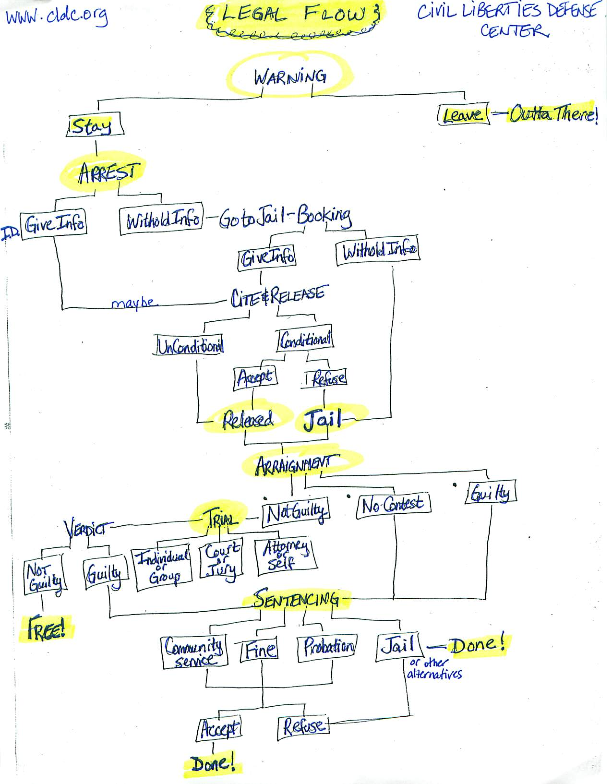 www.cldc.org
{LEGAL FLOW}
CIVIL LIBERTIES DEFENSE
CENTER
WARNING
Stay
Leave — Outta There!
ARREST
I.D.
Give Info
Withold Info — Go to Jail - Booking
Give Info
Withold Info
maybe
CITE & RELEASE
UnConditional
Conditional
Accept
Refuse
Released
Jail
ARRAIGNMENT
• Not Guilty
• No Contest
• Guilty
TRIAL
VERDICT
Not
Guilty
Guilty
Individual
or
Group
Court
or
Jury
Attorney
or
Self
FREE!
SENTENCING
Community
service
Fine
Probation
Jail — Done!
or other
alternatives
Accept
Refuse
Done!